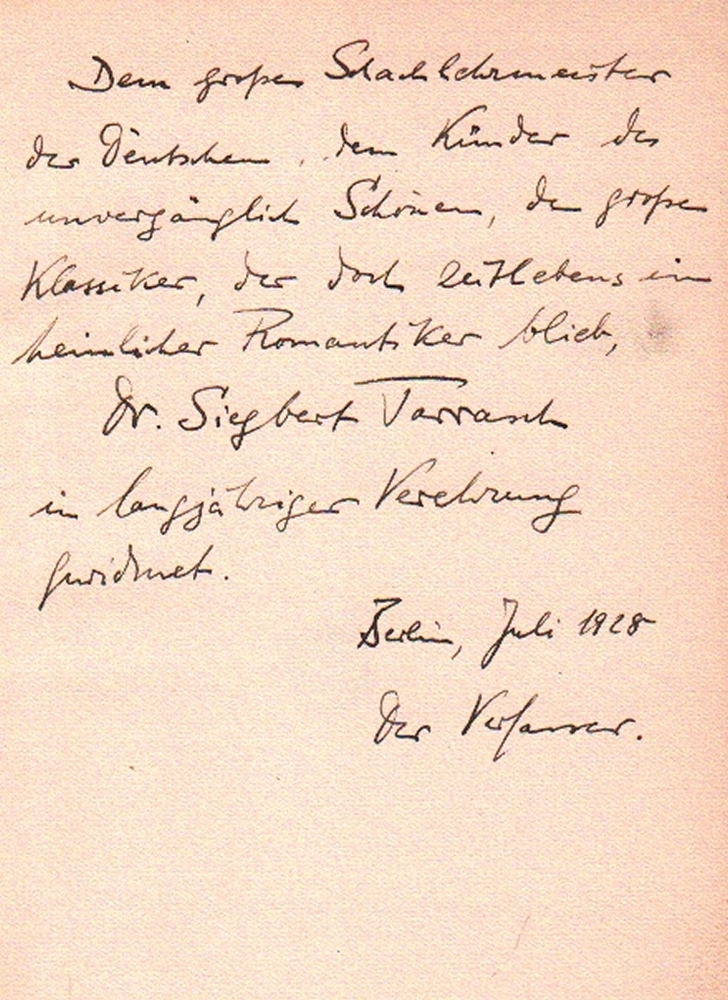 Dem großen Schachlehrmeister
der Deutschen, dem Künder des
unvergänglich Schönen, dem großen
Klassiker, der doch zeitlebens ein
heimlicher Romantiker blieb,
Dr. Siegbert Tarrasch
in langjähriger Verehrung
gewidmet.
Berlin, Juli 1928
Der Verfasser.